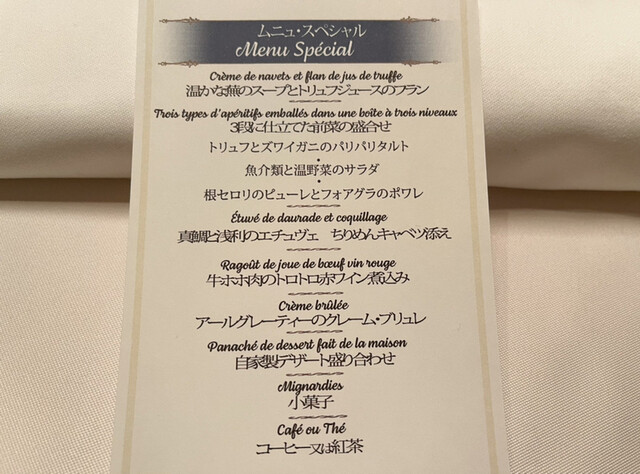 ムニュ・スペシャル
Menu Spécial
Crème de navets et flan de jus de truffe
温かな蕪のスープとトリュフジュースのフラン
Trois types d'apéritifs emballés dans une boîte à trois niveaux
3段に仕立てた前菜の盛合せ
トリュフとズワイガニのパリパリタルト
・
魚介類と温野菜のサラダ
・
根セロリのピューレとフォアグラのポワレ
Étuvé de daurade et coquillage
真鯛と浅利のエチュヴェ　ちりめんキャベツ添え
Ragoût de joue de bœuf vin rouge
牛ホホ肉のトロトロ赤ワイン煮込み
Crème brûlée
アールグレーティーのクレーム・ブリュレ
Panaché de dessert fait de la maison
自家製デザート盛り合わせ
Mignardies
小菓子
Café ou Thé
コーヒー又は紅茶